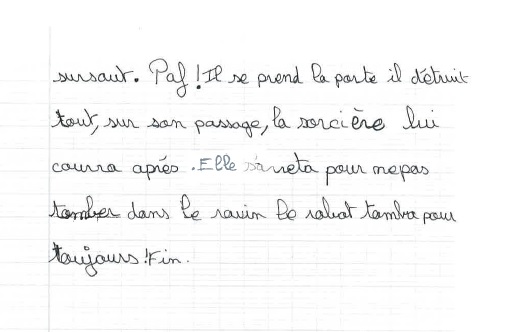 sursaut. Paf ! Il se prend la porte il détruit
tout, sur son passage, la sorcière lui
courra après. Elle s'arreta pour ne pas
tomber dans le ravin le robot tomba pour
toujours ! Fin.